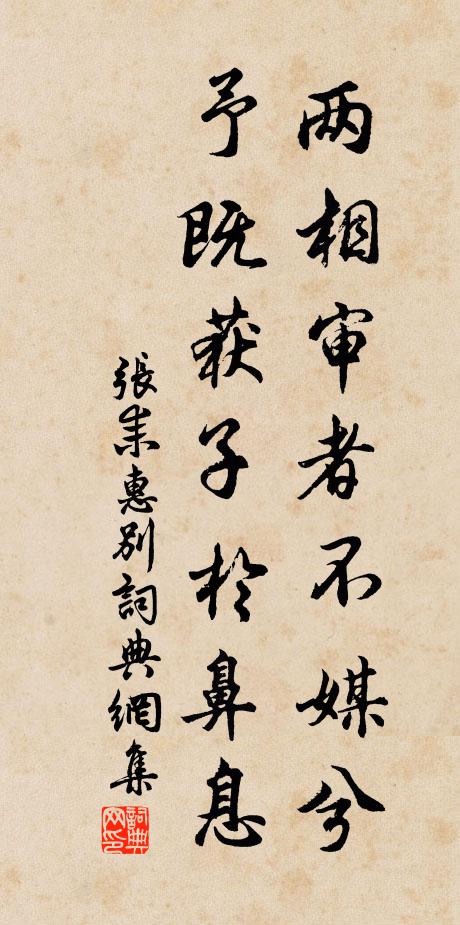 两相审者不媒兮
予既获子於鼻息
張耒惠别詞典網集
詞典网印